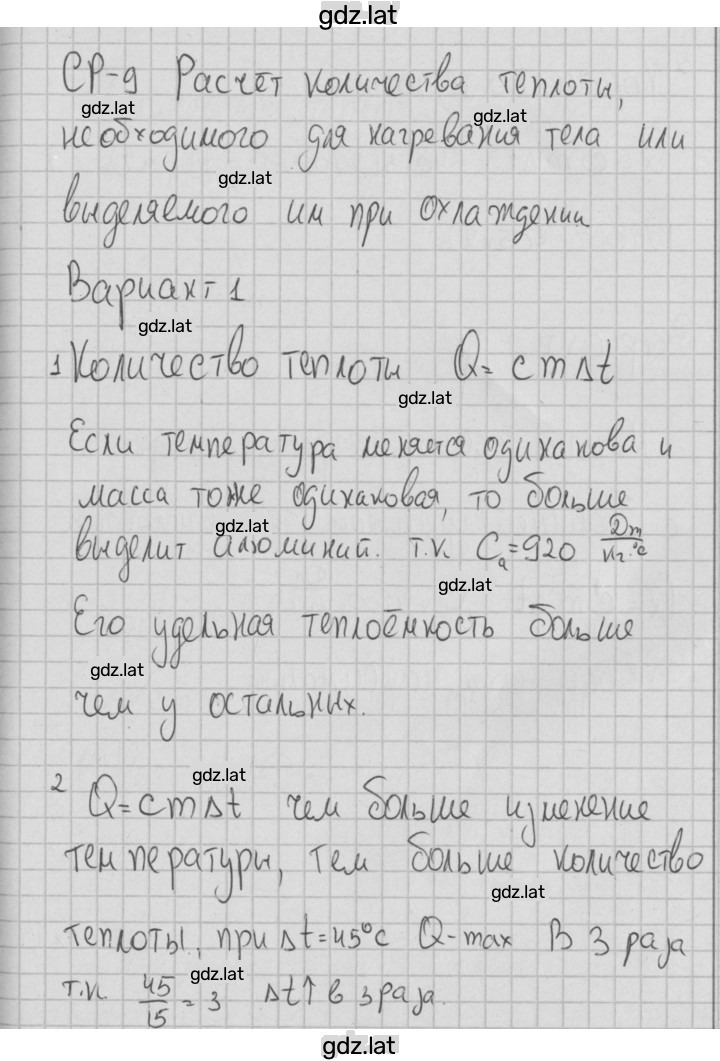 gdz.lat
СР-9 Расчёт количества теплоты,
gdz.lat gdz.lat
необходимого для нагревания тела или
gdz.lat
выделяемого им при охлаждении
Вариант 1
gdz.lat
1 Количество теплоты Q = c m Δt
gdz.lat
Если температура меняется одиканова и
масса тоже одинаковая, то больше
gdz.lat
выделит алюминий. т.к. Cа = 920 Дж/кг·°С
gdz.lat
Его удельная теплоёмкость больше
gdz.lat
чем у остальных.
gdz.lat
2 Q = c m Δt чем больше изменение
температуры, тем больше количество
gdz.lat
теплоты, при Δt = 45°С Q-max В 3 раза
gdz.lat
т.к. 45/15 = 3 Δt↑ в 3 раза.
gdz.lat